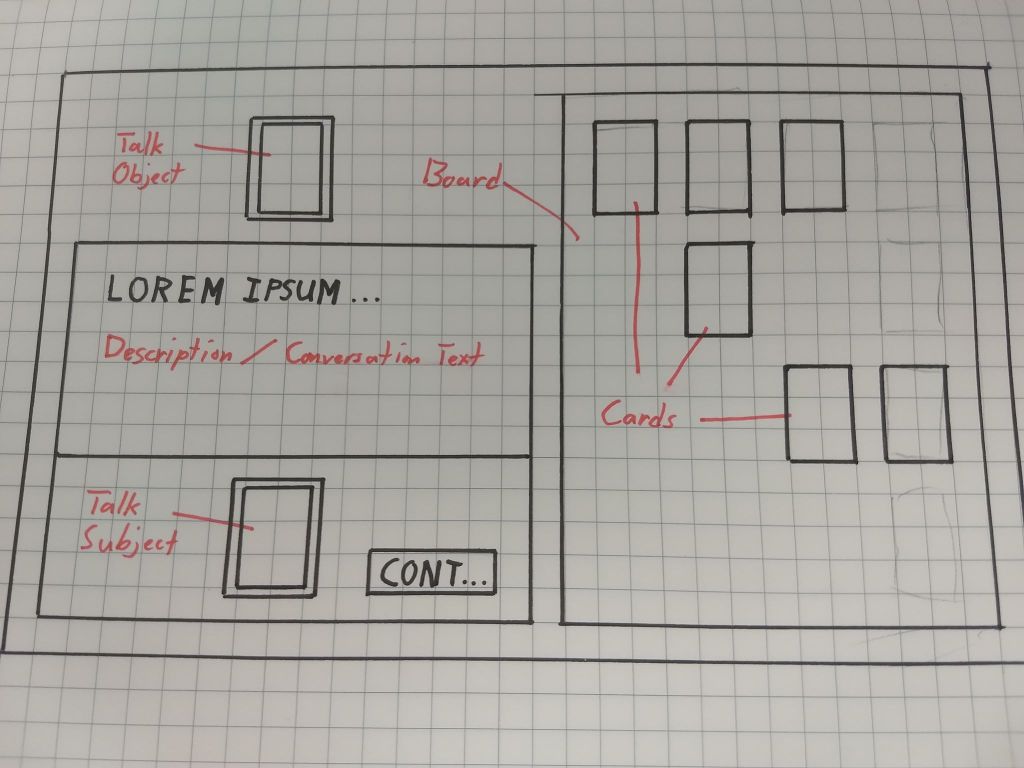 Talk
Object
Board
LOREM IPSUM...
Description / Conversation Text
Cards
Talk
Subject
CONT...